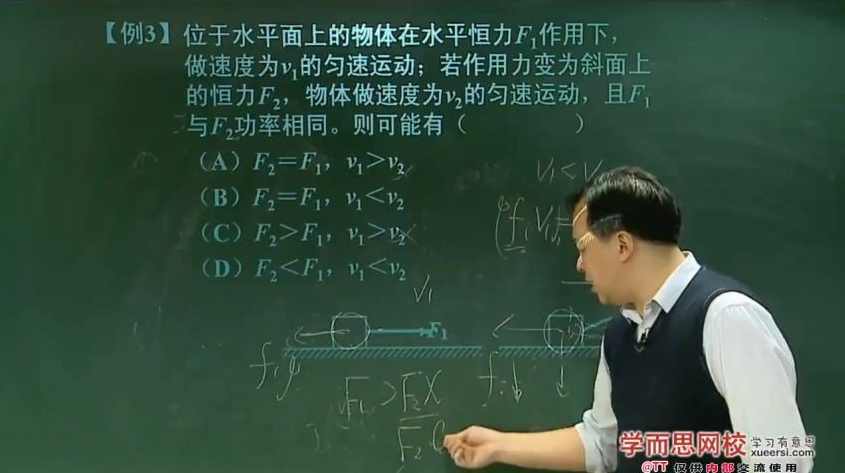 【例3】位于水平面上的物体在水平恒力F₁作用下，
做速度为v₁的匀速运动；若作用力变为斜面上
的恒力F₂，物体做速度为v₂的匀速运动，且F₁
与F₂功率相同。则可能有（　　　　）
（A）F₂＝F₁，v₁＞v₂
（B）F₂＝F₁，v₁＜v₂
（C）F₂＞F₁，v₁＞v₂
（D）F₂＜F₁，v₁＜v₂
V₁＜V
f₁V₁=
V₁
F₁
F₁＞F₂X
F₂
学而思网校 学习有意思
xueersi.com
@TT 仅供内部交流使用